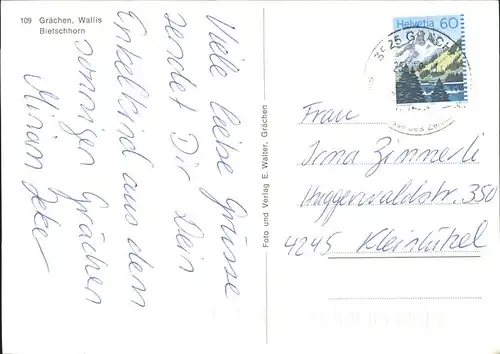 109 Grächen, Wallis
Bietschhorn
Viele liebe Grüsse
sendet Dir Dein
Enkelkind aus dem
sonnigen Grächen
Miriam
Foto und Verlag E. Walter, Grächen
Helvetia 60
3925 GRÄCHEN
Frau
Irma Zimmerli
Huggerwaldstr. 350
4245 Kleinlützel